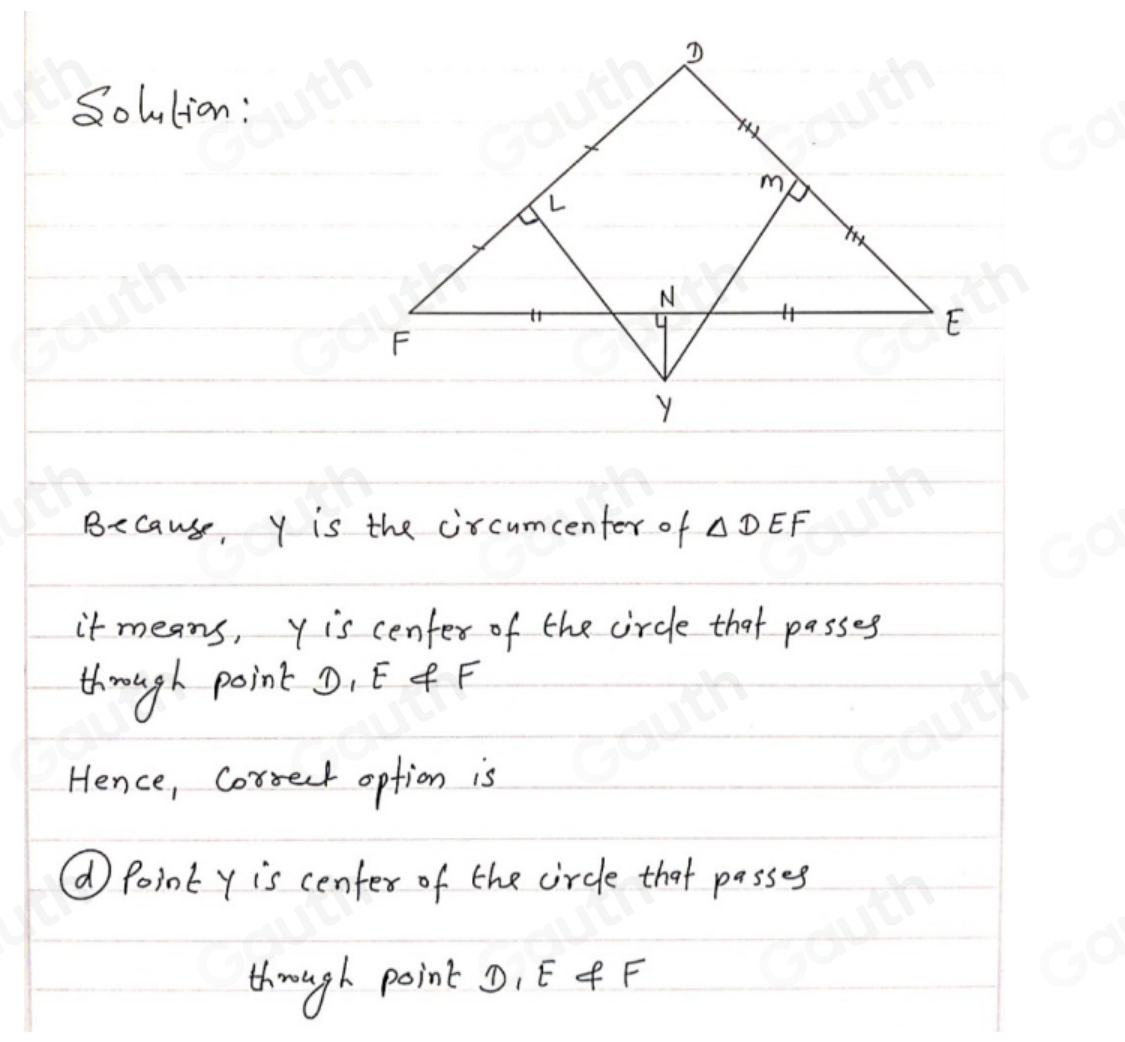 Solution:
D
L
M
F
N
E
Y
Because, Y is the circumcenter of △DEF
it means, Y is center of the circle that passes
through point D, E & F
Hence, Correct option is
d Point Y is center of the circle that passes
through point D, E & F
Gauth